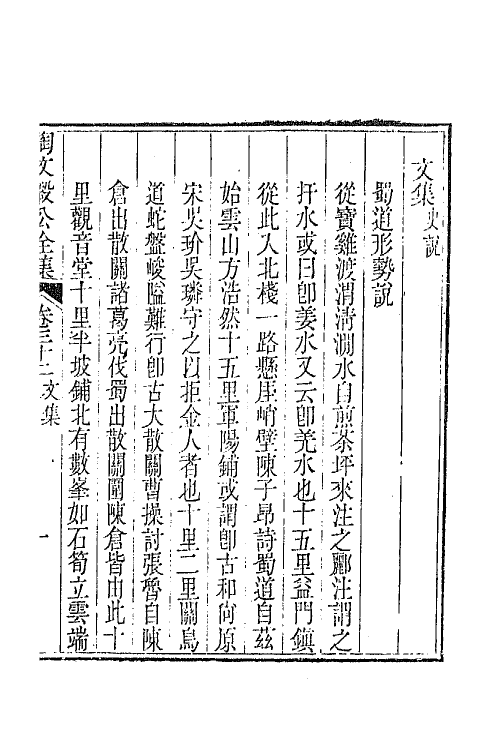 文集史說
蜀道形勢說
從寶雞渡渭清澗水自煎茶坪來注之酈注謂之
扞水或曰卽姜水又云卽羌水也十五里益門鎮
從此入北棧一路懸厓峭壁陳子昂詩蜀道自茲
始雲山方浩然十五里軍陽鋪或謂卽古和尙原
宋吳玠吳璘守之以拒金人者也十里二里關鳥
道蛇盤峻隘難行卽古大散關曹操討張魯自陳
倉出散關諸葛亮伐蜀出散關圍陳倉皆由此十
里觀音堂十里半坡鋪北有數峯如石筍立雲端
陶文毅公全集 卷三十二 文集 一